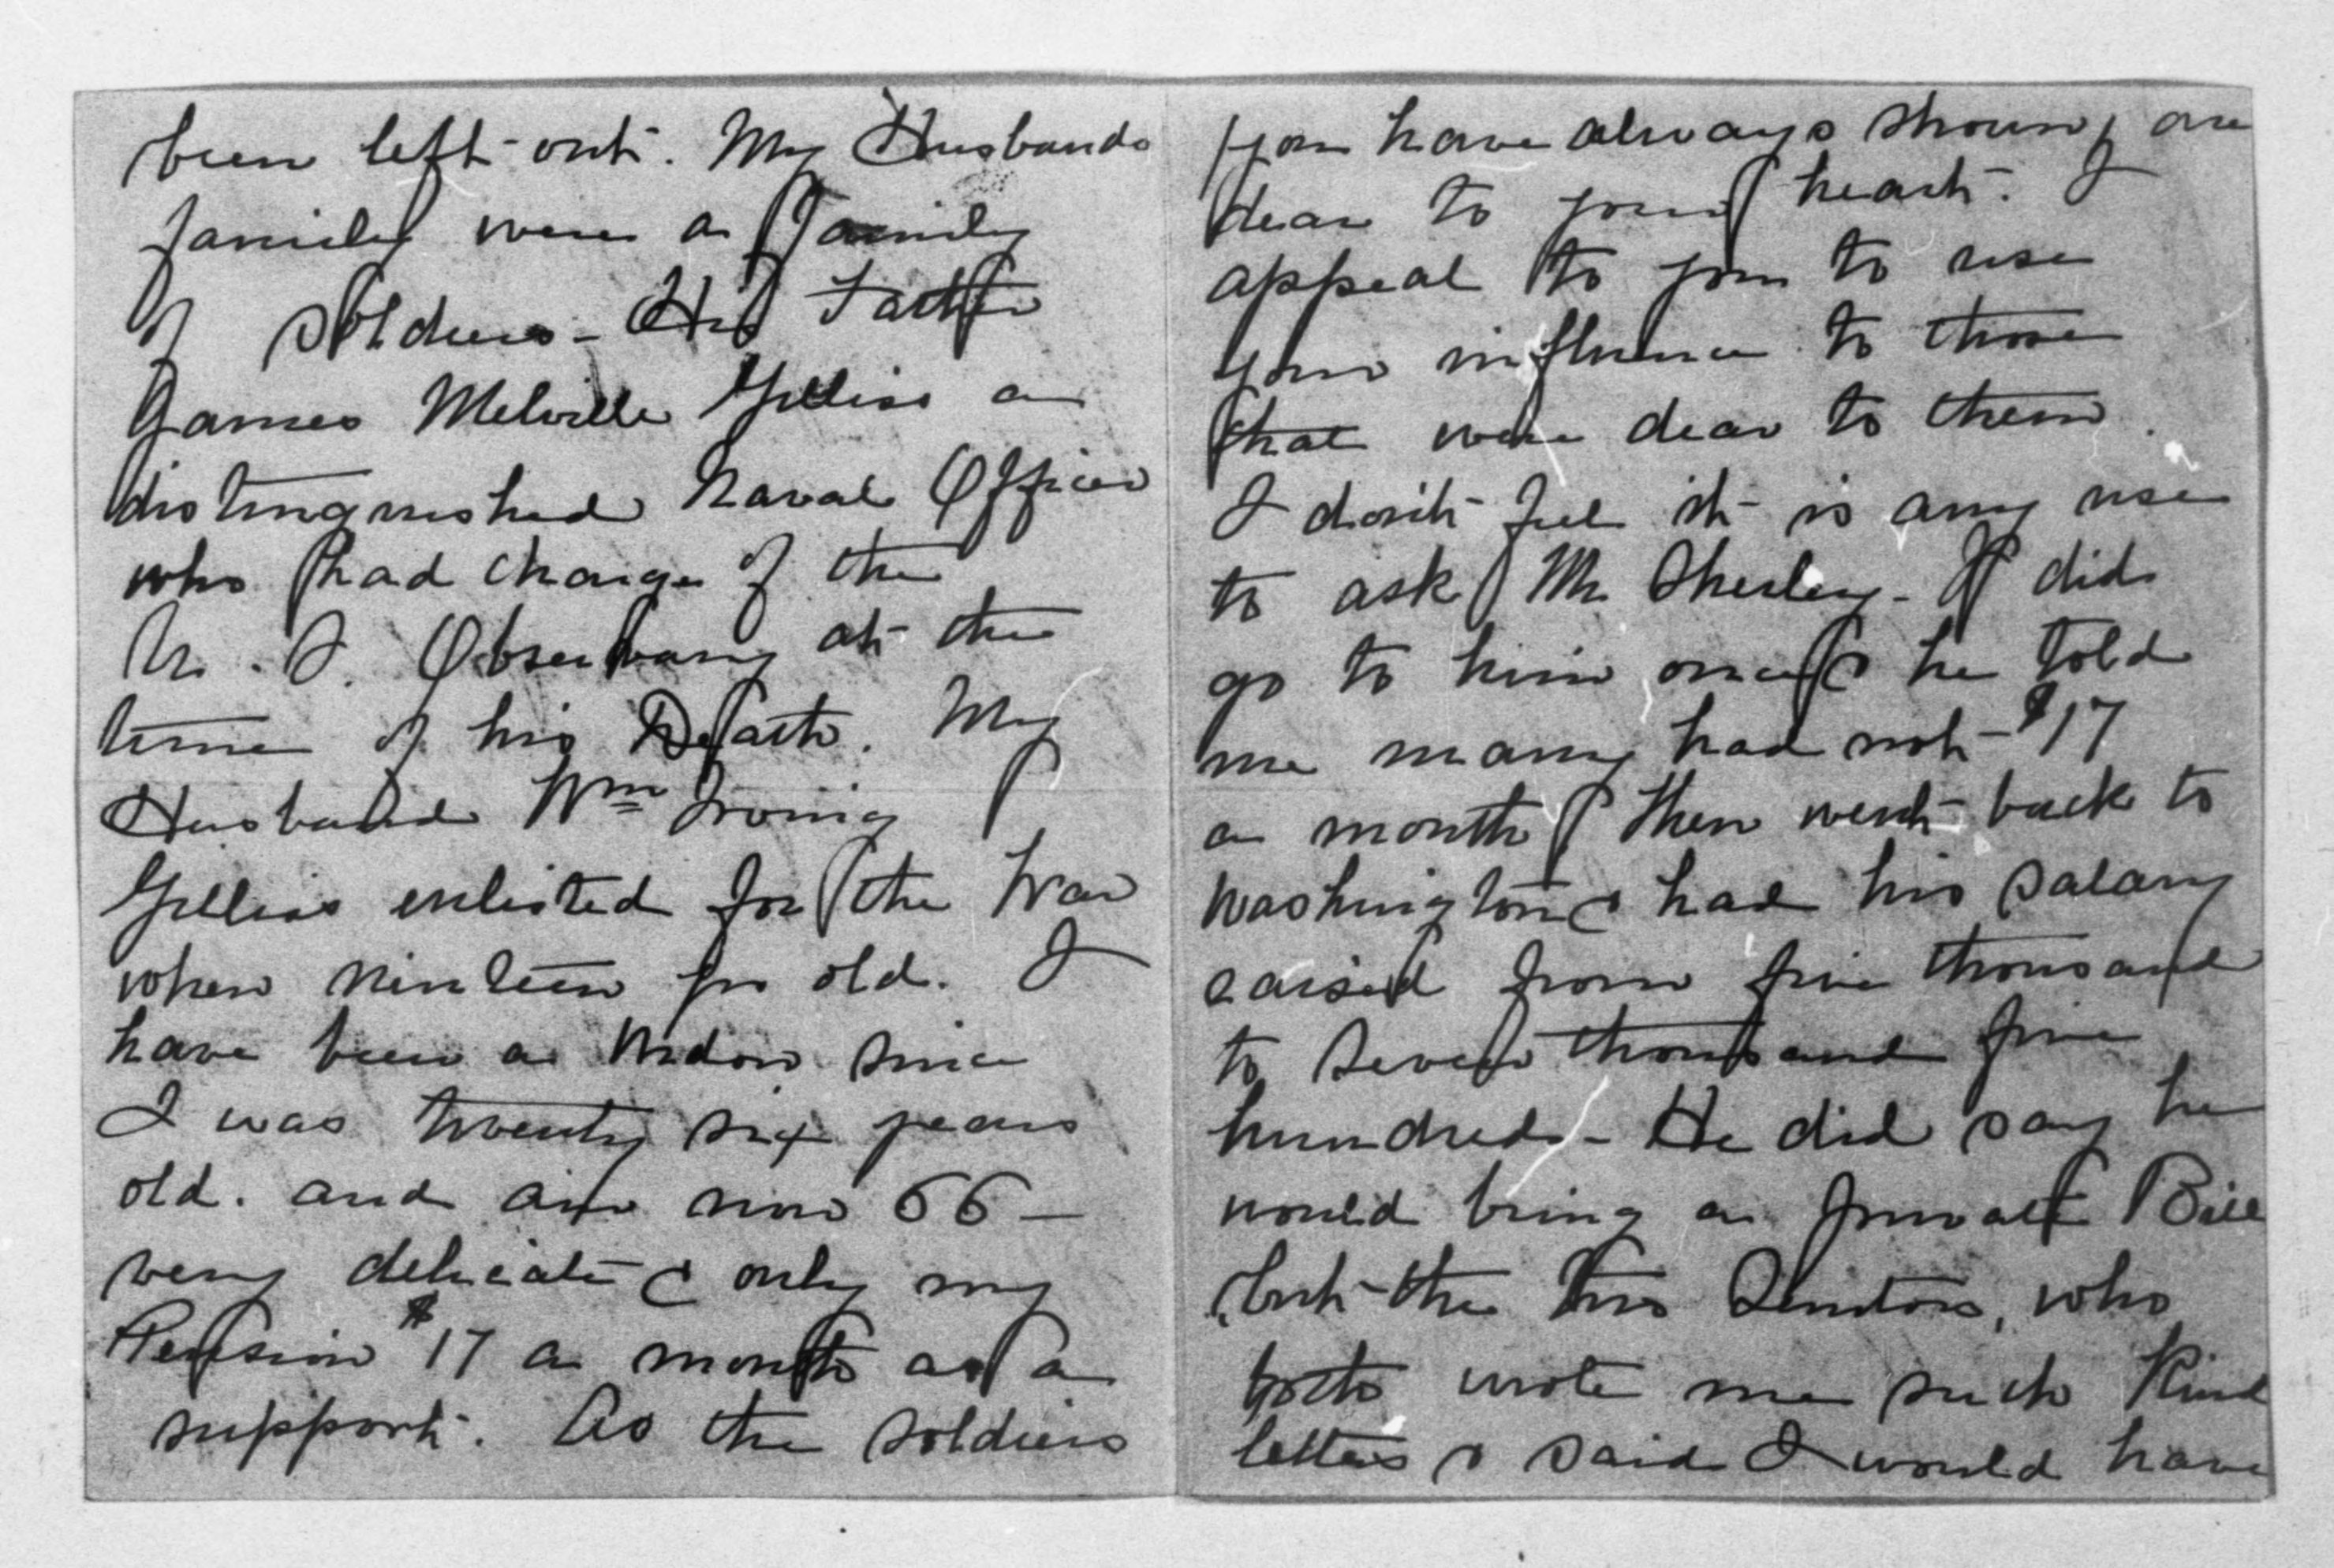 been left out. My Husbands
family were a family
of soldiers - His Father
James Melville Gilliss a
distinguished Naval Officer
who had charge of the
U. S. Observany at the
time of his Death. My
Husband Wm Irving
Gilliss enlisted for the War
when ninteen yrs old. I
have been a Widow since
I was twenty six years
old. and am now 66 —
very delicate & only my
Pension $17 a month as a
support. As the soldiers
you have always shown, are
dear to your heart. I
appeal to you to use
your influence to those
that were dear to them.
I don't feel it is any use
to ask Mr Sherley - I did
go to him once & he told
me many had not $17
a month, then went back to
Washington & had his salary
raised from five thousand
to seven thousand five
hundred - He did say he
would bring a private Bill
but the two Senators, who
both wrote me such kind
letters & said I would have